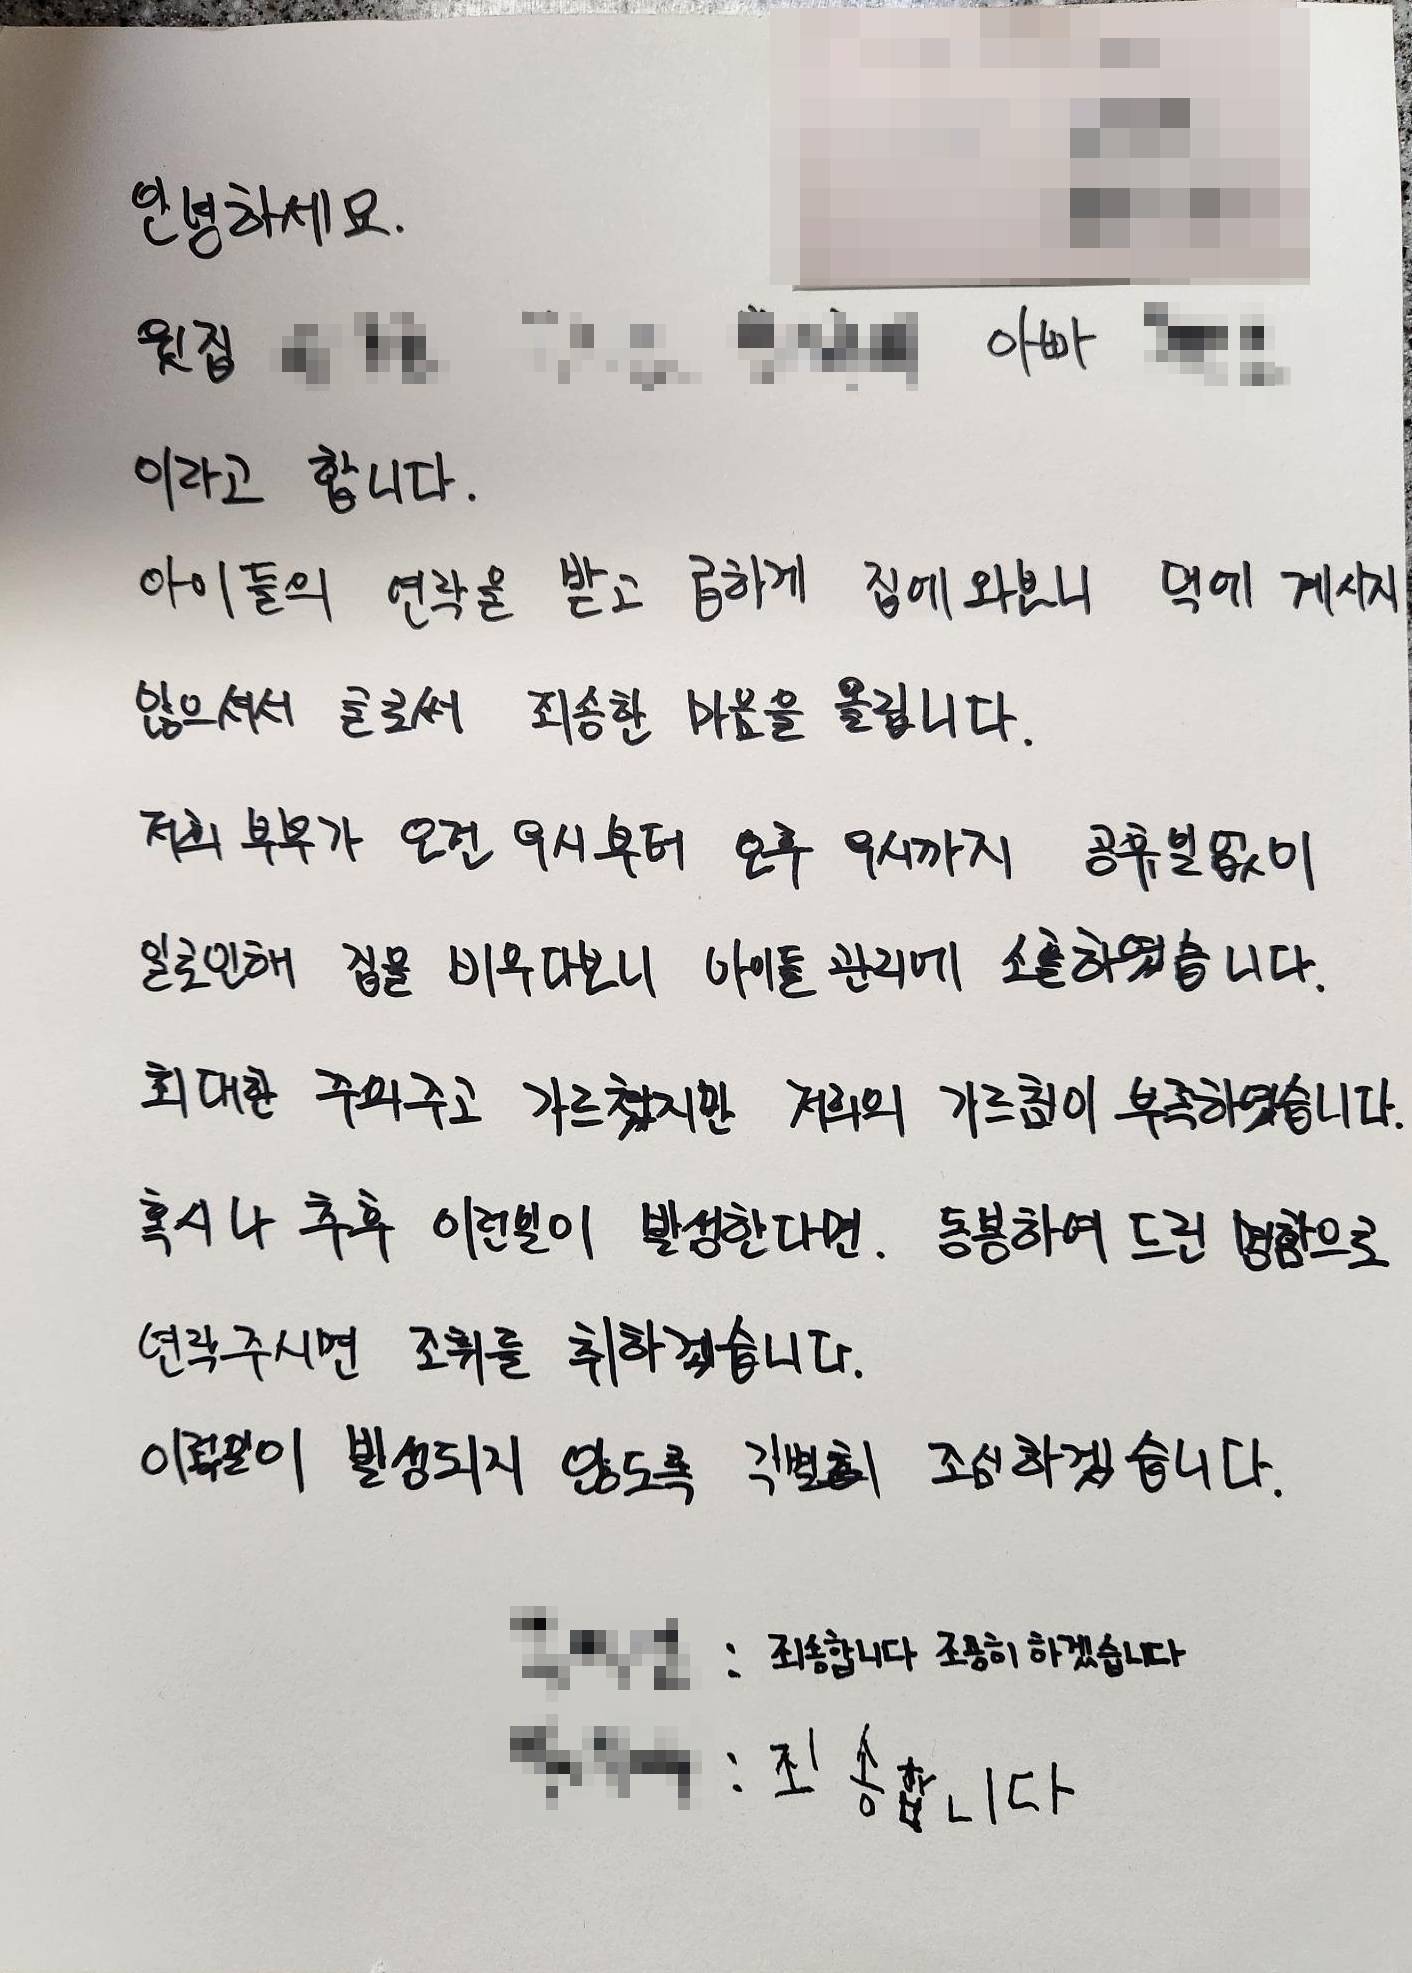 안녕하세요.
윗집 아빠
이라고 합니다.
아이들의 연락을 받고 급하게 집에와보니 댁에 계시지
않으셔서 글로써 죄송한 마음을 올립니다.
저희 부부가 오전 9시부터 오후 9시까지 공휴일없이
일로인해 집을 비우다보니 아이들 관리에 소홀하였습니다.
최대한 주의주고 가르쳤지만 저희의 가르침이 부족하였습니다.
혹시나 추후 이런일이 발생한다면. 동봉하여 드린 명함으로
연락주시면 조취를 취하겠습니다.
이런일이 발생되지 않도록 각별히 조심하겠습니다.
: 죄송합니다 조용히 하겠습니다
: 죄송합니다